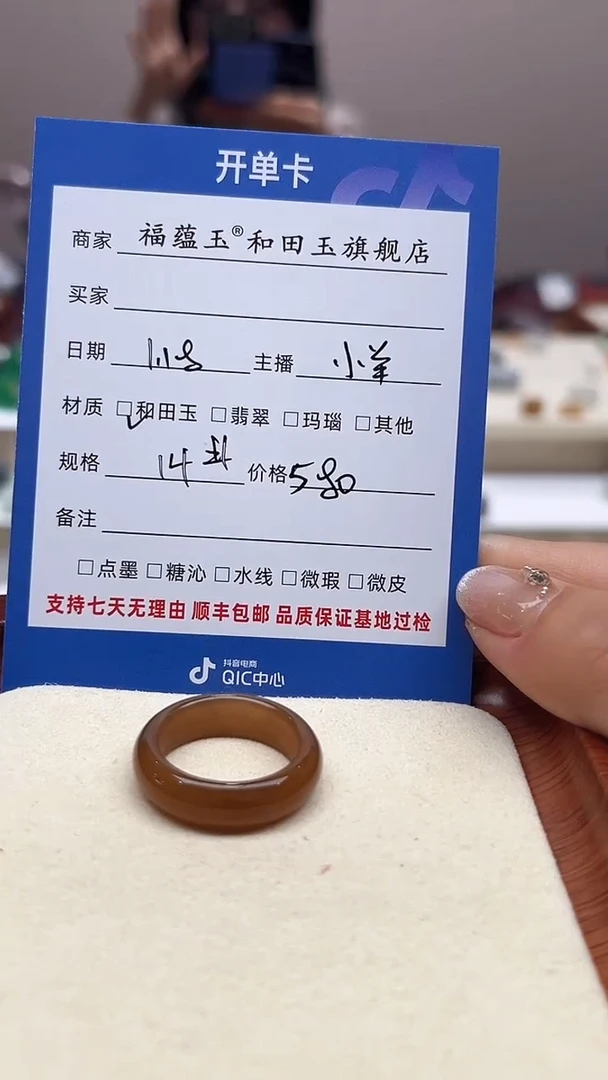 开单卡
商家 福蕴玉®和田玉旗舰店
买家
日期 11.8 主播 小羊
材质 ☑和田玉 □翡翠 □玛瑙 □其他
规格 14 价格580
备注
□点墨 □糖沁 □水线 □微瑕 □微皮
支持七天无理由 顺丰包邮 品质保证基地过检
抖音电商
QIC中心